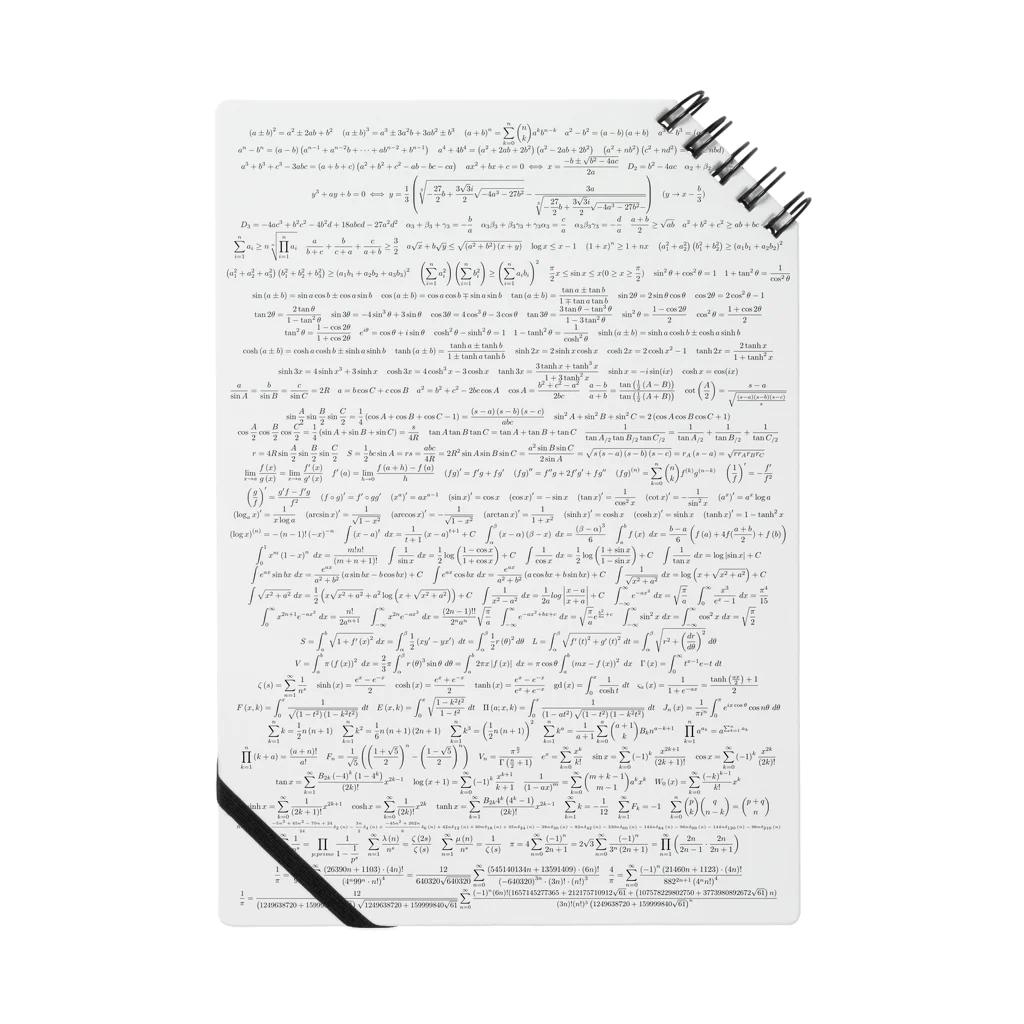 (a ± b)² = a² ± 2ab + b² (a ± b)³ = a³ ± 3a²b + 3ab² ± b³ (a + b)ⁿ = ∑_{k=0}^{n} (n k) aᵏbⁿ⁻ᵏ a² − b² = (a − b)(a + b)
aⁿ − bⁿ = (a − b)(aⁿ⁻¹ + aⁿ⁻²b + ⋯ + abⁿ⁻² + bⁿ⁻¹) a⁴ + 4b⁴ = (a² + 2ab + 2b²)(a² − 2ab + 2b²)
a³ + b³ + c³ − 3abc = (a + b + c)(a² + b² + c² − ab − bc − ca) ax² + bx + c = 0 ⟺ x = (−b ± √(b² − 4ac))/2a D₂ = b² − 4ac
y³ + ay + b = 0 ⟺ y = 1/3 (y → x − b/3)
D₃ = −4ac³ + b²c² − 4b³d + 18abcd − 27a²d² α₃ + β₃ + γ₃ = −b/a α₃β₃ + β₃γ₃ + γ₃α₃ = c/a α₃β₃γ₃ = −d/a (a + b)/2 ≥ √ab a² + b² + c² ≥ ab + bc
∑_{i=1}^{n} aᵢ ≥ n ⁿ√(∏_{i=1}^{n} aᵢ) a/(b + c) + b/(c + a) + c/(a + b) ≥ 3/2 a√x + b√y ≤ √((a² + b²)(x + y)) log x ≤ x − 1 (1 + x)ⁿ ≥ 1 + nx (a₁² + a₂²)(b₁² + b₂²) ≥ (a₁b₁ + a₂b₂)²
(a₁² + a₂² + a₃²)(b₁² + b₂² + b₃²) ≥ (a₁b₁ + a₂b₂ + a₃b₃)² (∑_{i=1}^{n} aᵢ²)(∑_{i=1}^{n} bᵢ²) ≥ (∑_{i=1}^{n} aᵢbᵢ)² sin²θ + cos²θ = 1 1 + tan²θ = 1/cos²θ
sin(a ± b) = sin a cos b ± cos a sin b cos(a ± b) = cos a cos b ∓ sin a sin b tan(a ± b) = (tan a ± tan b)/(1 ∓ tan a tan b) sin 2θ = 2 sin θ cos θ cos 2θ = 2 cos²θ − 1
tan 2θ = 2 tan θ/(1 − tan²θ) sin 3θ = −4 sin³θ + 3 sin θ cos 3θ = 4 cos³θ − 3 cos θ tan 3θ = (3 tan θ − tan³θ)/(1 − 3 tan²θ) sin²θ = (1 − cos 2θ)/2 cos²θ = (1 + cos 2θ)/2
tan²θ = (1 − cos 2θ)/(1 + cos 2θ) e^{iθ} = cos θ + i sin θ cosh²θ − sinh²θ = 1 1 − tanh²θ = 1/cosh²θ sinh(a ± b) = sinh a cosh b ± cosh a sinh b
cosh(a ± b) = cosh a cosh b ± sinh a sinh b tanh(a ± b) = (tanh a ± tanh b)/(1 ± tanh a tanh b) sinh 2x = 2 sinh x cosh x cosh 2x = 2 cosh x² − 1 tanh 2x = 2 tanh x/(1 + tanh²x)
sinh 3x = 4 sinh³x + 3 sinh x cosh 3x = 4 cosh³x − 3 cosh x tanh 3x = (3 tanh x + tanh³x)/(1 + 3 tanh²x) sinh x = −i sin(ix) cosh x = cos(ix)
a/sin A = b/sin B = c/sin C = 2R a = b cos C + c cos B a² = b² + c² − 2bc cos A cos A = (b² + c² − a²)/2bc (a − b)/(a + b) = tan(½(A − B))/tan(½(A + B)) cot(A/2) = (s − a)/√((s−a)(s−b)(s−c)/s)
sin A/2 sin B/2 sin C/2 = 1/4 (cos A + cos B + cos C − 1) = (s − a)(s − b)(s − c)/abc sin²A + sin²B + sin²C = 2(cos A cos B cos C + 1)
cos A/2 cos B/2 cos C/2 = 1/4 (sin A + sin B + sin C) = s/4R tan A tan B tan C = tan A + tan B + tan C 1/(tan A/2 tan B/2 tan C/2) = 1/tan A/2 + 1/tan B/2 + 1/tan C/2
r = 4R sin A/2 sin B/2 sin C/2 S = 1/2 bc sin A = rs = abc/4R = 2R² sin A sin B sin C = a² sin B sin C/2 sin A = √(s(s − a)(s − b)(s − c)) = r_A(s − a) = √(r r_A r_B r_C)
lim_{x→a} f(x)/g(x) = lim_{x→a} f′(x)/g′(x) f′(a) = lim_{h→0} (f(a + h) − f(a))/h (fg)′ = f′g + fg′ (fg)″ = f″g + 2f′g′ + fg″ (fg)⁽ⁿ⁾ = ∑_{k=0}^{n} (n k) f⁽ᵏ⁾g⁽ⁿ⁻ᵏ⁾ (1/f)′ = −f′/f²
(g/f)′ = (g′f − f′g)/f² (f ∘ g)′ = f′ ∘ gg′ (xᵃ)′ = axᵃ⁻¹ (sin x)′ = cos x (cos x)′ = −sin x (tan x)′ = 1/cos²x (cot x)′ = −1/sin²x (aˣ)′ = aˣ log a
(log_a x)′ = 1/(x log a) (arcsin x)′ = 1/√(1 − x²) (arccos x)′ = −1/√(1 − x²) (arctan x)′ = 1/(1 + x²) (sinh x)′ = cosh x (cosh x)′ = sinh x (tanh x)′ = 1 − tanh²x
(log x)⁽ⁿ⁾ = −(n − 1)!(−x)⁻ⁿ ∫(x − a)ᵗ dx = 1/(t + 1) (x − a)ᵗ⁺¹ + C ∫_α^β (x − α)(β − x) dx = (β − α)³/6 ∫_a^b f(x) dx = (b − a)/6 (f(a) + 4f((a + b)/2) + f(b))
∫₀¹ xᵐ(1 − x)ⁿ dx = m!n!/(m + n + 1)! ∫ 1/sin x dx = 1/2 log((1 − cos x)/(1 + cos x)) + C ∫ 1/cos x dx = 1/2 log((1 + sin x)/(1 − sin x)) + C ∫ 1/tan x dx = log|sin x| + C
∫ e^{ax} sin bx dx = e^{ax}/(a² + b²) (a sin bx − b cos bx) + C ∫ e^{ax} cos bx dx = e^{ax}/(a² + b²) (a cos bx + b sin bx) + C ∫ 1/√(x² + a²) dx = log(x + √(x² + a²)) + C
∫ √(x² + a²) dx = 1/2 (x√(x² + a²) + a² log(x + √(x² + a²))) + C ∫ 1/(x² − a²) dx = 1/2a log|(x − a)/(x + a)| + C ∫_{−∞}^{∞} dx = √(π/a) ∫₀^∞ x³/(eˣ − 1) dx = π⁴/15
∫₀^∞ x²ⁿ⁺¹ dx = n!/2aⁿ⁺¹ ∫_{−∞}^{∞} x²ⁿ dx = (2n − 1)!!/2ⁿaⁿ √(π/a) ∫_{−∞}^{∞} sin x² dx = ∫_{−∞}^{∞} cos x² dx = √(π/2)
S = ∫_a^b √(1 + f′(x)²) dx = ∫_α^β 1/2 (xy′ − yx′) dt = ∫_α^β 1/2 r(θ)² dθ L = ∫_α^β √(f′(t)² + g′(t)²) dt = ∫_α^β √(r² + (dr/dθ)²) dθ
V = ∫_a^b π(f(x))² dx = 2/3 π ∫_α^β r(θ)³ sin θ dθ = ∫_a^b 2πx|f(x)| dx = π cos θ ∫_a^b (mx − f(x))² dx Γ(x) = ∫₀^∞ tˣ⁻¹e−t dt
ζ(s) = ∑_{n=1}^{∞} 1/nˢ sinh(x) = (eˣ − e⁻ˣ)/2 cosh(x) = (eˣ + e⁻ˣ)/2 tanh(x) = (eˣ − e⁻ˣ)/(eˣ + e⁻ˣ) gd(x) = ∫₀ˣ 1/cosh t dt ς_a(x) = 1/(1 + e⁻ᵃˣ) = (tanh(ax/2) + 1)/2
F(x, k) = ∫₀ˣ 1/√((1 − t²)(1 − k²t²)) dt E(x, k) = ∫₀ˣ √((1 − k²t²)/(1 − t²)) dt Π(a; x, k) = ∫₀ˣ 1/((1 − at²)√((1 − t²)(1 − k²t²))) dt Jₙ(x) = 1/πiⁿ ∫₀^π e^{ix cos θ} cos nθ dθ
∑_{k=1}^{n} k = 1/2 n(n + 1) ∑_{k=1}^{n} k² = 1/6 n(n + 1)(2n + 1) ∑_{k=1}^{n} k³ = (1/2 n(n + 1))² ∑_{k=1}^{n} kᵃ = 1/(a + 1) ∑_{k=0}^{a} (a + 1 k) Bₖnᵃ⁻ᵏ⁺¹
∏_{k=1}^{n} (k + a) = (a + n)!/a! Fₙ = 1/√5 (((1 + √5)/2)ⁿ − ((1 − √5)/2)ⁿ) Vₙ = π^{n/2}/Γ(n/2 + 1) eˣ = ∑_{k=0}^{∞} xᵏ/k! sin x = ∑_{k=0}^{∞} (−1)ᵏ x²ᵏ⁺¹/(2k + 1)! cos x = ∑_{k=0}^{∞} (−1)ᵏ x²ᵏ/(2k)!
tan x = ∑_{k=1}^{∞} B₂ₖ(−4)ᵏ(1 − 4ᵏ)/(2k)! x²ᵏ⁻¹ log(x + 1) = ∑_{k=0}^{∞} (−1)ᵏ xᵏ⁺¹/(k + 1) 1/(1 − ax)ᵐ = ∑_{k=0}^{∞} (m + k − 1 m − 1) aᵏxᵏ W₀(x) = ∑_{k=0}^{∞} (−k)ᵏ⁻¹/k! xᵏ
inh x = ∑_{k=0}^{∞} 1/(2k + 1)! x²ᵏ⁺¹ cosh x = ∑_{k=0}^{∞} 1/(2k)! x²ᵏ tanh x = ∑_{k=1}^{∞} B₂ₖ4ᵏ(4ᵏ − 1)/(2k)! x²ᵏ⁻¹ ∑_{k=1}^{∞} k = −1/12 ∑_{k=1}^{∞} Fₖ = −1 ∑_{k=0}^{n} (p k)(q n − k) = (p + q n)
= ∏_{p:prime} 1/(1 − 1/pˢ) ∑_{n=1}^{∞} λ(n)/nˢ = ζ(2s)/ζ(s) ∑_{n=1}^{∞} μ(n)/nˢ = 1/ζ(s) π = 4∑_{n=0}^{∞} (−1)ⁿ/(2n + 1) = 2√3 ∑_{n=0}^{∞} (−1)ⁿ/3ⁿ(2n + 1) = ∏_{n=1}^{∞} (2n/(2n − 1) 2n/(2n + 1))
1/π = (26390n + 1103)·(4n)!/(4ⁿ99ⁿ·n!)⁴ = 12/640320√640320 ∑_{n=0}^{∞} (545140134n + 13591409)·(6n)!/(−640320)³ⁿ·(3n)!·(n!)³ 4/π = ∑_{n=0}^{∞} (−1)ⁿ(21460n + 1123)·(4n)!/882²ⁿ⁺¹(4ⁿn!)⁴
1/π = 12 ∑_{n=0}^{∞} (−1)ⁿ(6n)!(1657145277365 + 212175710912√61 + (107578229802750 + 3773980892672√61)n)/(3n)!(n!)³(1249638720 + 159999840√61)ⁿ